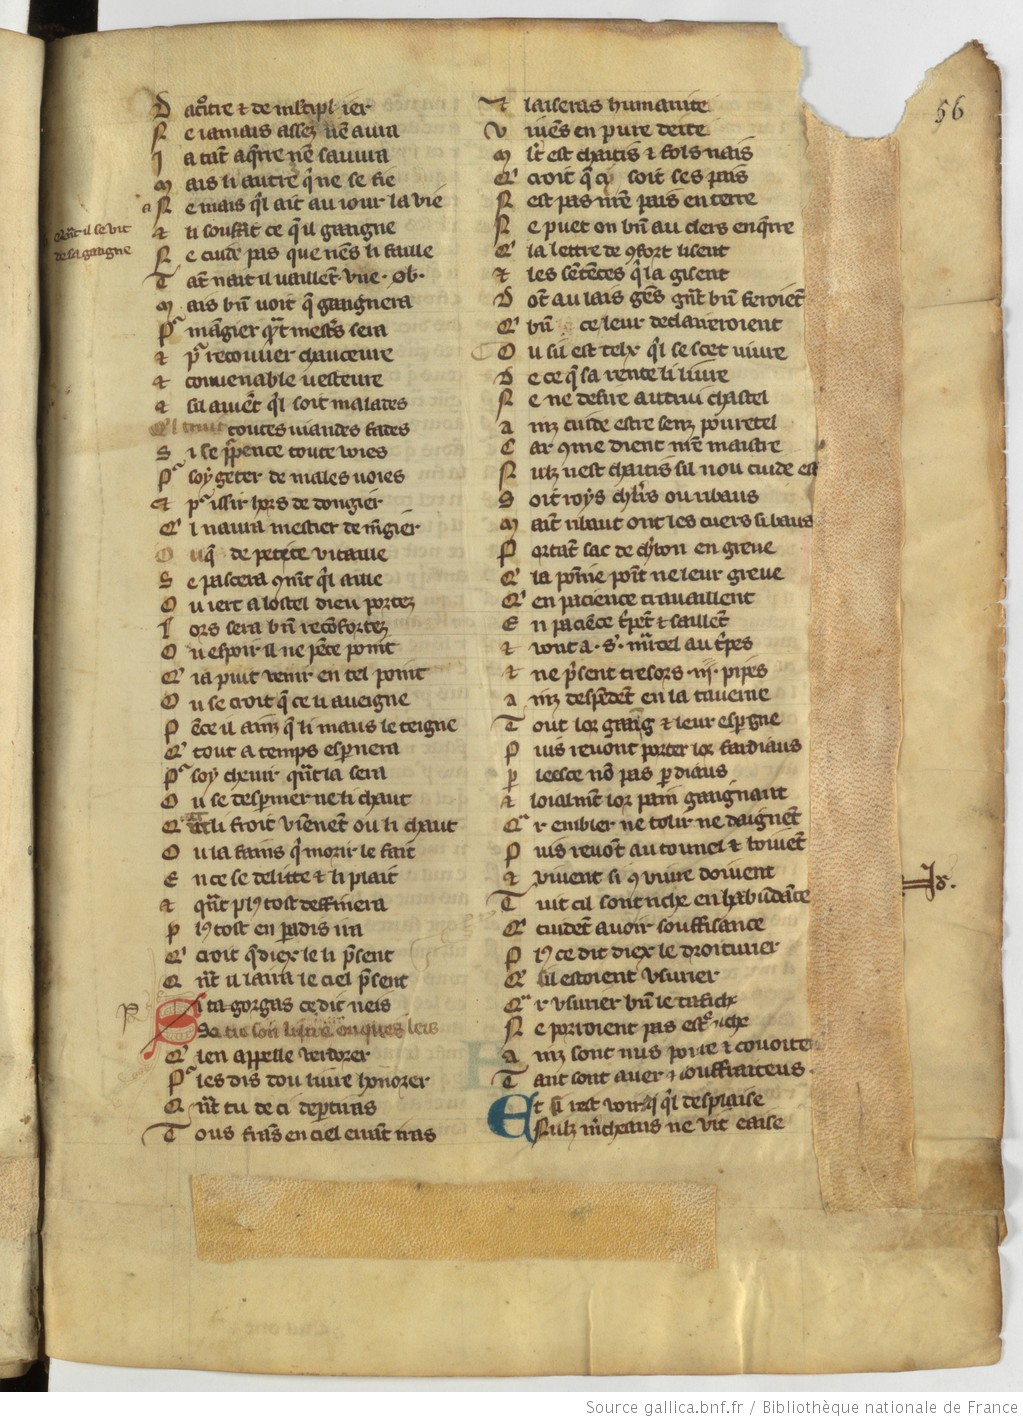 56
D acōtre ⁊ de mltipl ier
N e iamais assez nē aura
I a tāt aq̄rre nē saura
M ais li autre q̄ ne se fie
a N e mais q̄l ait au iour la vie
⁊ li souffit ce q̄ il gaigne
il se vit
de sa gaigne
N e cuide pas que nēs li faille
T āt nait il uaillēt vne ob.
M ais bn̄ uoit q̄ gaignera
P' māgier q̄t mest's sera
⁊ p' recouurer chauceure
⁊ conuenable uesteure
⁊ sil auiēt q̄l soit malades
toutes uiandes fades
S i se p̄pence toute uoies
P' soy geter de males uoies
⁊ p' issir hors de dongier
Q' l naura mestier de mēgier
O uq̄ de petite vitaille
S e pascera 9mēt q̄l aille
O u iert a lostel dieu portez
L ors sera bn̄ recōfortez
O u espoir il ne pēce point
Q' ia puit venir en tel point
O u se croit q̄ ce li aueigne
P ēce il ainz q̄ li maus le teigne
Q' tout a temps esp̄nera
P' soy cheuir q̄nt la sera
O u se desp̄nier ne li chaut
li froit viēnēt ou li chaut
O u la fains q̄ morir le fait
E n ce se delitte ⁊ li plait
⁊ q̄nt pl9 tost deffinera
P l9 tost en p̄adis ira
Q' croit q̄ diex le li p̄sent
Q n̄t il laira le ciel p̄sent
P
Si ta gorgas ce dit neis
Q' len appelle verdorer
P' les dis dou liure honorer
Q n̄t tu de ci dep̄tiras
T ous frās en ciel euāt iras
⁊ laiseras humanite
V iuēs en pure deite
M lt est chaitis ⁊ fols nais
Q' croit q̄ ci soit ses pais
N est pas nr̄e pais en terre
N e puet on bn̄ au clers enq̄rre
Q' la lettre de 9fort lisent
⁊ les sētēces q̄ la gisent
D ōt au lais gēs gn̄t bn̄ feroiēt
Q' bn̄ ce leur declaireroient
O u sil est telx q̄l se scet uiure
D e ce q̄ sa rente li liure
N e ne desire autrui chastel
A inz cuide estre senz pouretel
C ar 9me dient nr̄e maistre
N ulz nest chaitis sil nou cuide est
S oit roys chlr̄s ou ribaus
M aīt ribaut ont les cuers si baus
P ortāt sac de ch'bon en greue
Q' la pōme poīt ne leur greue
Q' en pacience trauaillent
E n paciēce t̄pēt ⁊ saillēt
⁊ vont a . s'. mr̄cel au t̄pes
⁊ ne p̄sent tresors .iij. pipes
A inz despēdēt en la tauerne
T out lor gaaīg ⁊ leur esp̄gne
P uis reuont porter lor fardiaus
P leesce nō pas p̄ diaus
⁊ loialmt̄ lor pain gaignait
Q' r embler ne tolir ne daignēt
P uis reuōt au tounel ⁊ boiuēt
⁊ viuent si 9 viure doiuent
T uit cil sont riche en habūdāce
Q' cuidēt auoir souffisance
P l9 ce dit diex le droiturier
Q' sil estoient vsurier
Q' r vsurier bn̄ le tafiche
N e porroient pas est' riche
A inz sont tuis poure ⁊ couoite
T ant sont auer ⁊ souffraiteus
Et si rest voir q̄l desplaise
Nulz m̄cheans ne vit eaise
Source gallica.bnf.fr / Bibliothèque nationale de France